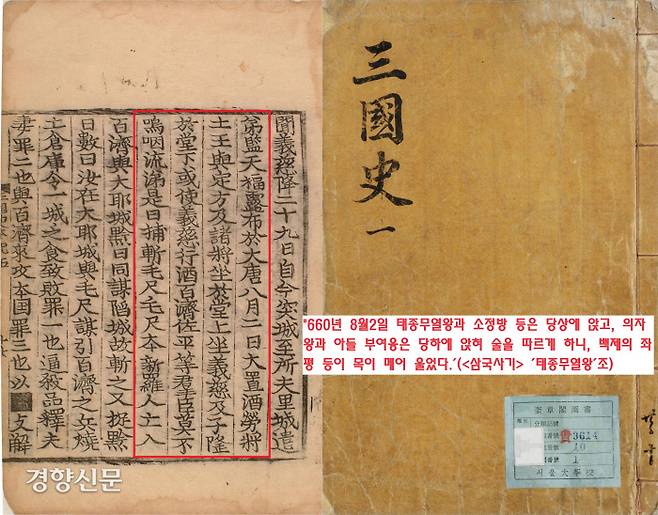 聞義慈降二十九日自今突城至所夫里城遣
弟監天福露布於大唐八月二日大置酒勞將
士王與定方及諸將坐於堂上坐義慈及子隆
於堂下或使義慈行酒百濟佐平等君臣莫不
嗚咽流涕是日捕斬毛尺毛尺本新羅人亡入
百濟與大耶城黔日同謀陷城故斬之又捉黔
日數曰汝在大耶城與毛尺謀引百濟之兵燒
亡倉庫令一城之食致敗罪一也逼殺品釋夫
妻罪二也與百濟來攻本國罪三也以 支解
경향신문
三國史 一
"660년 8월2일 태종무열왕과 소정방 등은 당상에 앉고, 의자
왕과 아들 부여융은 당하에 앉혀 술을 따르게 하니, 백제의 좌
평 등이 목이 메어 울었다.'(<삼국사기> '태종무열왕'조)
奎章閣圖書
3614
10
1
서울大學校